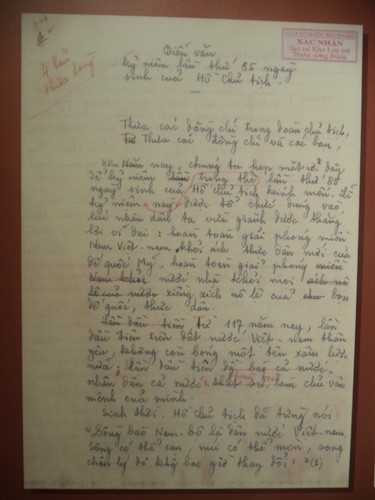 4 bản
đánh máy
XÁC NHẬN
Diễn văn
kỷ niệm lần thứ 85 ngày
sinh của Hồ Chủ tịch.
Thưa các đồng chí trong đoàn chủ tịch,
Thưa các đồng chí và các bạn,
Hôm nay, chúng ta họp mít tinh ở đây
để kỷ niệm trọng thể lần thứ 85
ngày sinh của Hồ Chủ tịch kính mến. Lễ
kỷ niệm này được tổ chức đúng vào
lúc nhân dân ta vừa giành được thắng
lợi vĩ đại: hoàn toàn giải phóng miền
Nam Việt-nam khỏi ách thực dân mới của
đế quốc Mỹ, hoàn toàn giải phóng
nước nhà khỏi mọi
xiềng xích nô lệ của bọn
đế quốc, thực dân.
Lần đầu tiên từ 117 năm nay, lần
đầu tiên trên đất nước Việt-nam thân
yêu, không còn bóng một tên xâm lược
nữa; lần đầu tiên
nhân dân cả nước thật sự làm chủ vận
mệnh của mình.
Sinh thời, Hồ Chủ tịch đã từng nói:
"Đồng bào Nam-bộ là dân nước Việt-nam.
Sông có thể cạn, núi có thể mòn, song
chân lý đó không bao giờ thay đổi!" (1)